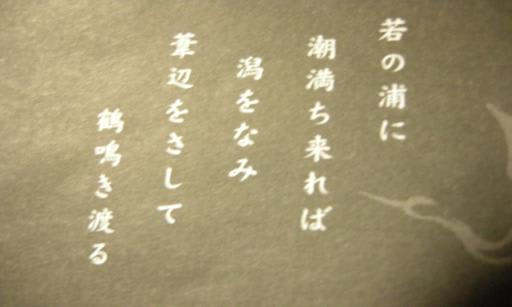 若の浦に
潮満ち来れば
潟をなみ
葦辺をさして
鶴鳴き渡る